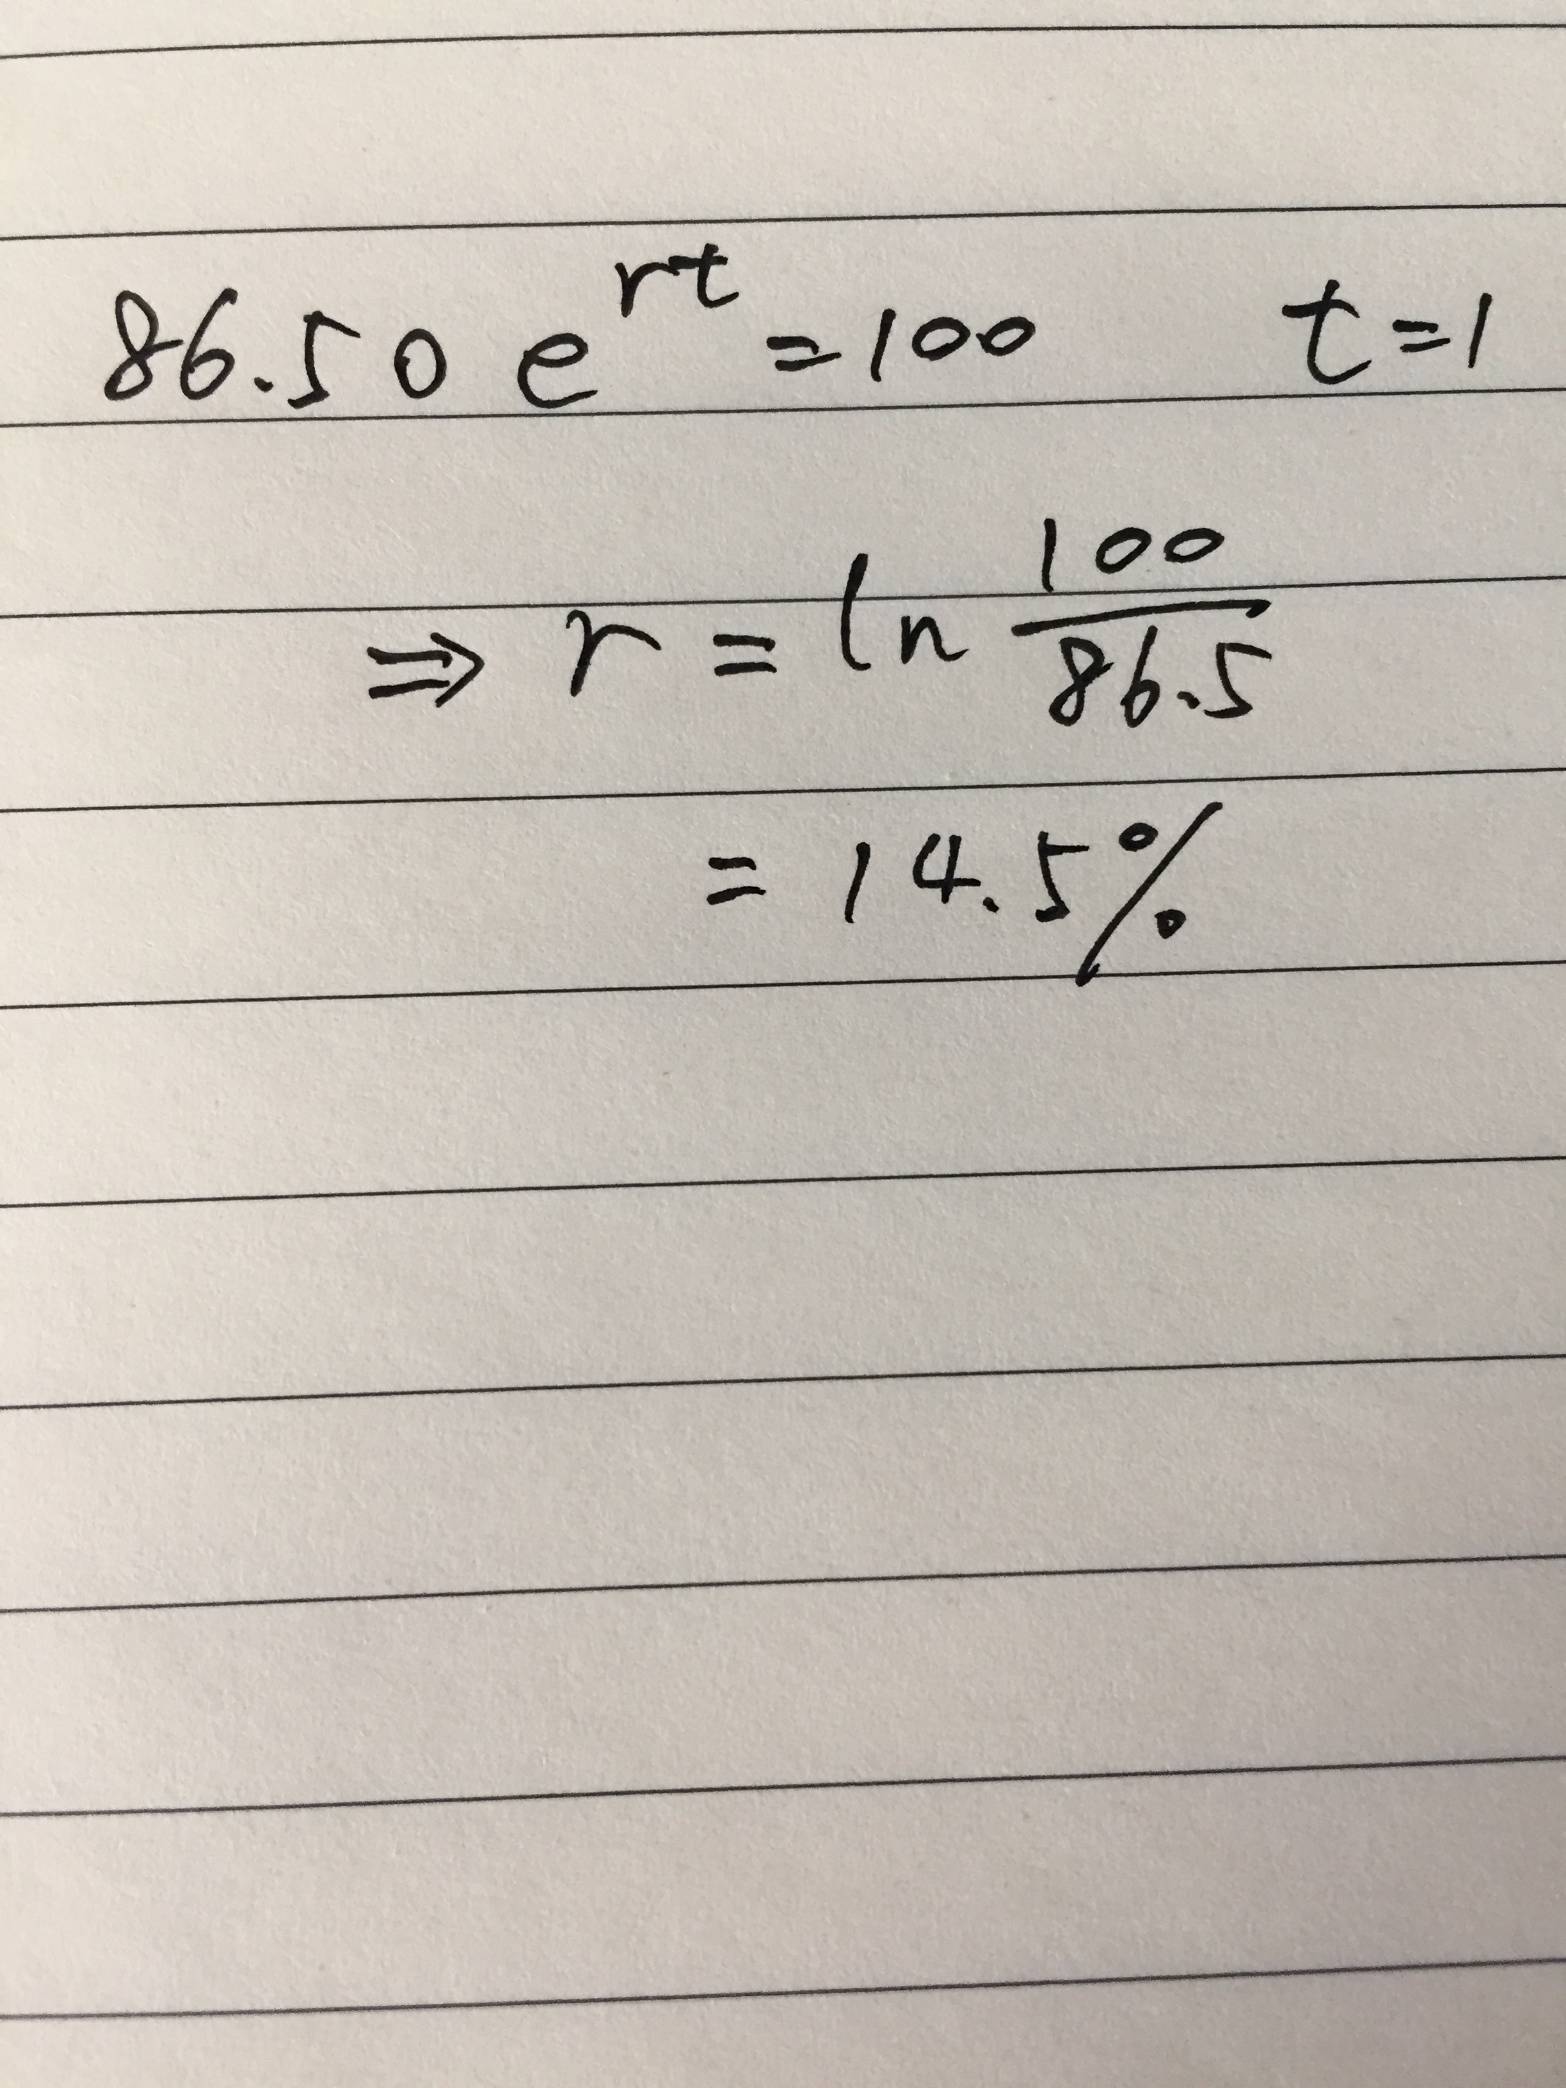 86.50 e^{rt} = 100 t = 1
⇒ r = ln \frac{100}{86.5}
= 14.5%